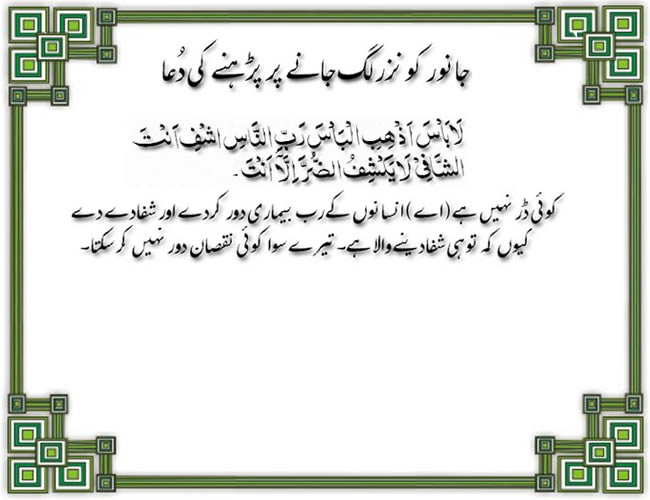 جانور کو نزر لگ جانے پر پڑھنے کی دُعا
لَا بَاْسَ اَذْهِبِ الْبَاْسَ رَبَّ النَّاسِ اشْفِ اَنْتَ
الشَّافِیْ لَا یَكْشِفُ الضُّرَّ اِلَّا اَنْتَ۔
کوئی ڈر نہیں ہے (اے) انسانوں کے رب بیماری دور کردے اور شفا دے دے
کیوں کہ تو ہی شفا دینے والا ہے۔ تیرے سوا کوئی نقصان دور نہیں کر سکتا۔